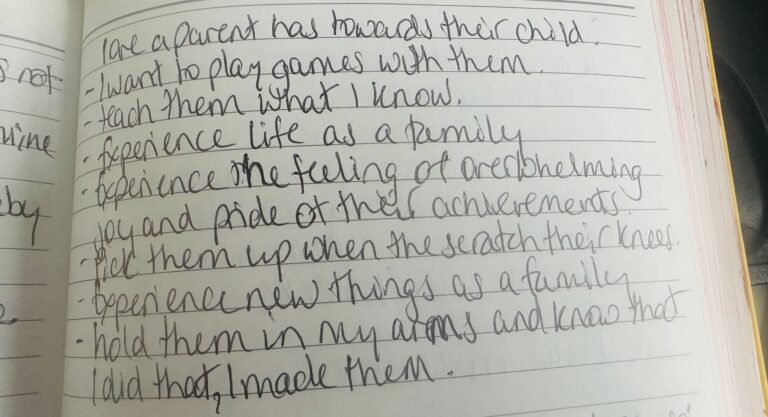 love a parent has towards their child.
- I want to play games with them.
- teach them what I know.
- Experience life as a family
- Experience the feeling of overwhelming
joy and pride of their achievements.
- Pick them up when the scratch their knees.
- Experience new things as a family
- hold them in my arms and know that
I did that, I made them.
s not
by